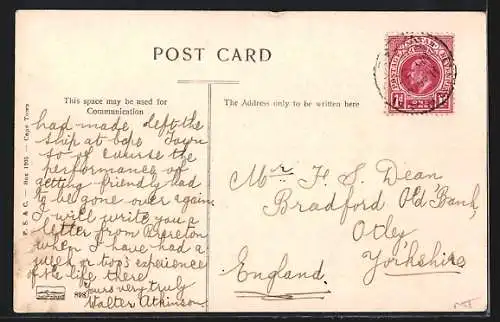 POST CARD
This space may be used for
Communication
The Address only to be written here
POSTAGE
REVENUE
1D
ONE
P. S. & C. — Box 1930. — Cape Town
had made, left the
ship at Cape Town
so of course the
performance of
getting friendly had
to be gone over again.
I will write you a
letter from Brereton
when I have had a
week or two's experience
of the life there
Yours very truly
Walter Atkinson
Mr. H. S. Dean
Bradford Old Bank,
Otley
Yorkshire
England.